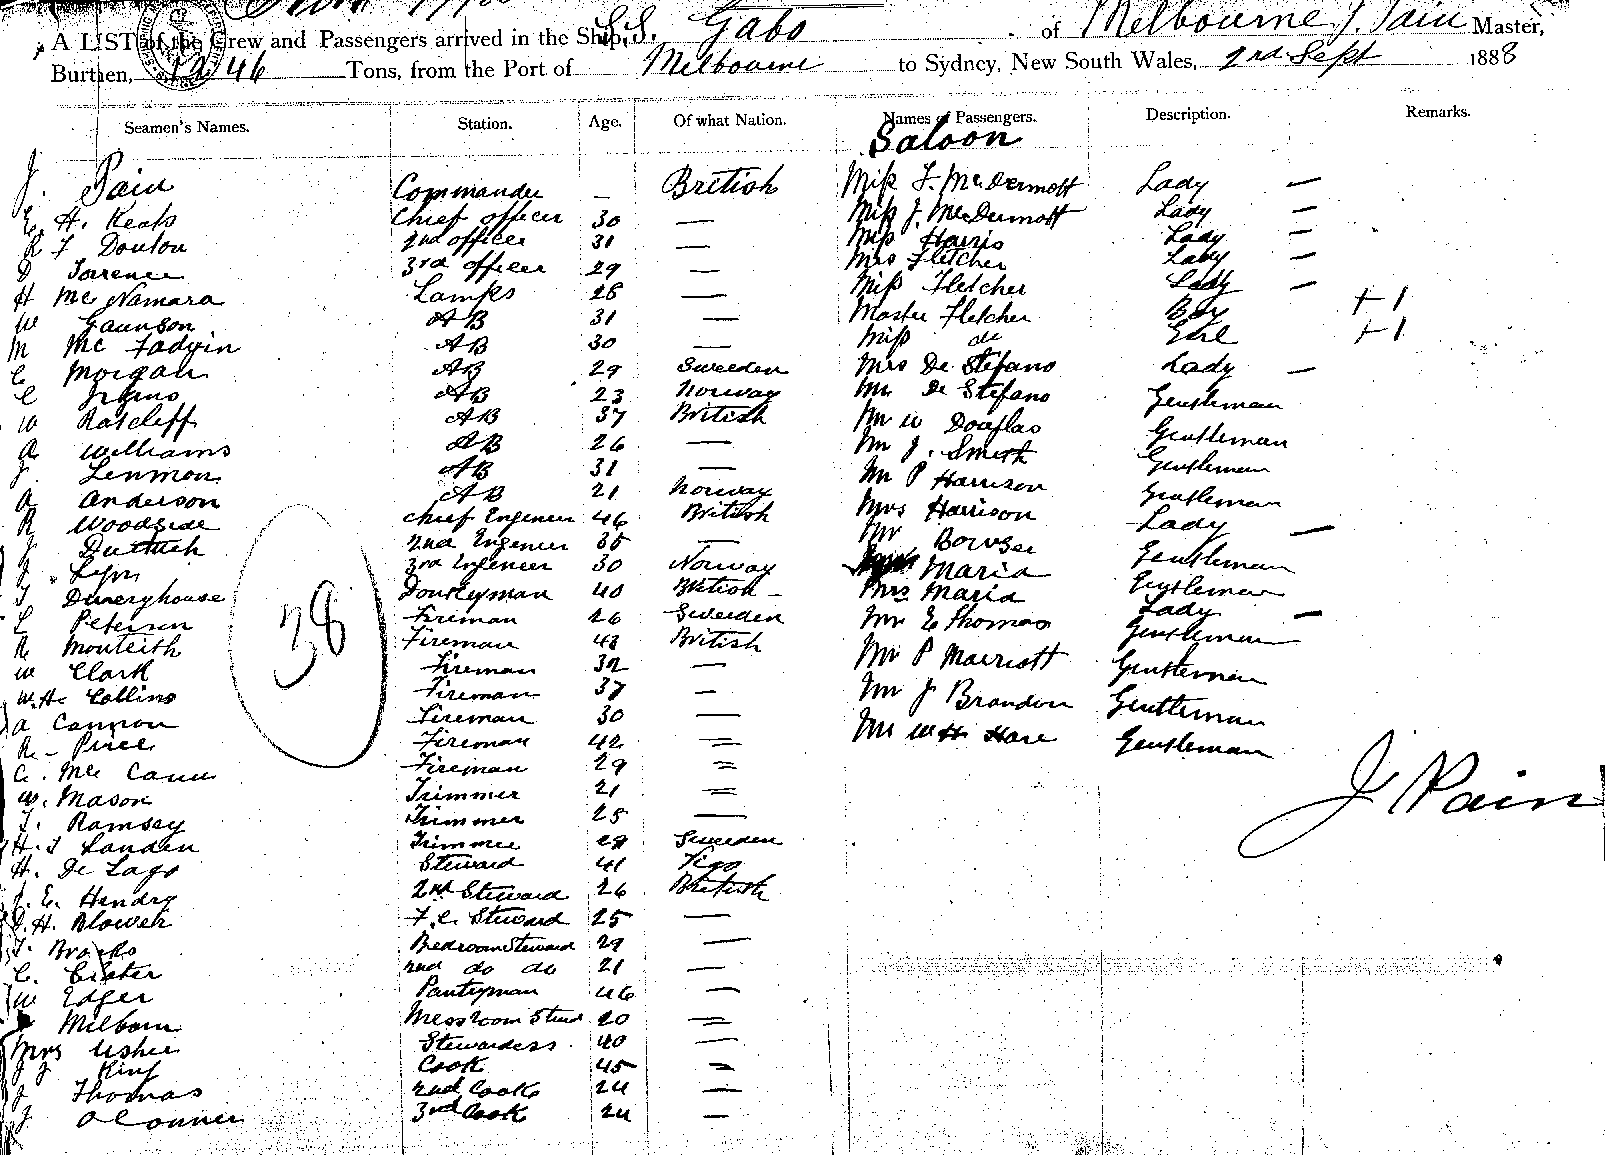 A LIST of the Crew and Passengers arrived in the Ship S.S. Gabo of Melbourne J. Pain Master,
Burthen, 1246 Tons, from the Port of Melbourne to Sydney, New South Wales, 2nd Sept 1888
Seamen's Names. Station. Age. Of what Nation. Names of Passengers. Description. Remarks.
Saloon
J. Pain Commander — British Miss F. McDermott Lady —
E. H. Keats Chief officer 30 — Miss J. McDermott Lady —
R F Douton 2nd officer 31 — Miss Harris Lady —
D Torrence 3rd officer 29 — Mrs Fletcher Lady —
H Mc Namara Lamps 28 — Miss Fletcher Lady —
W Gaunson AB 31 — Master Fletcher Boy +1
M Mc Fadyin AB 30 — Miss do Girl +1
C Morgan AB 29 Sweden Mrs De Stefano Lady —
C AB 23 Norway Mr De Stefano Gentleman
W Ratcliff AB 37 British Mr W Douglas Gentleman
A Williams AB 26 — Mr J. Smith Gentleman
J. Lenmon AB 31 — Mr P Harrison Gentleman
A Anderson AB 21 Norway Mrs Harrison Lady —
R Woodside Chief Engineer 46 British Mr Bowser Gentleman
J 2nd Engineer 35 — Maria Gentleman
3rd Engineer 30 Norway Mrs Maria Lady —
T Donkeyman 40 British — Mr E Thomas Gentleman
C Peterson Fireman 26 Sweden Mr P Marriott Gentleman
R Monteith Fireman 43 British Mr J Brandon Gentleman
W Clark Fireman 32 — Mr W H Hare Gentleman
W.H. Collins Fireman 37 —
A Cannon Fireman 30 —
38
R - Piree Fireman 42 =
C. Mc Cann Fireman 29 =
J Pain
W. Mason Trimmer 21 =
T. Ramsay Trimmer 25 —
H. J Landen Trimmer 28 Sweden
H. De Lago Steward 41 Vigo
J. E. Hendry 2nd Steward 26 British
H. Blower F.C. Steward 25 —
T. Brooks Bedroom Steward 29 —
C. 2nd do do 21 —
W Edger Pantryman 46 =
Milborn Messroom Stewd 20 =
Mrs Usher Stewardess 40 —
J King Cook 45 —
J Thomas 2nd Cook 24 —
J O Conner 3rd Cook 24 —